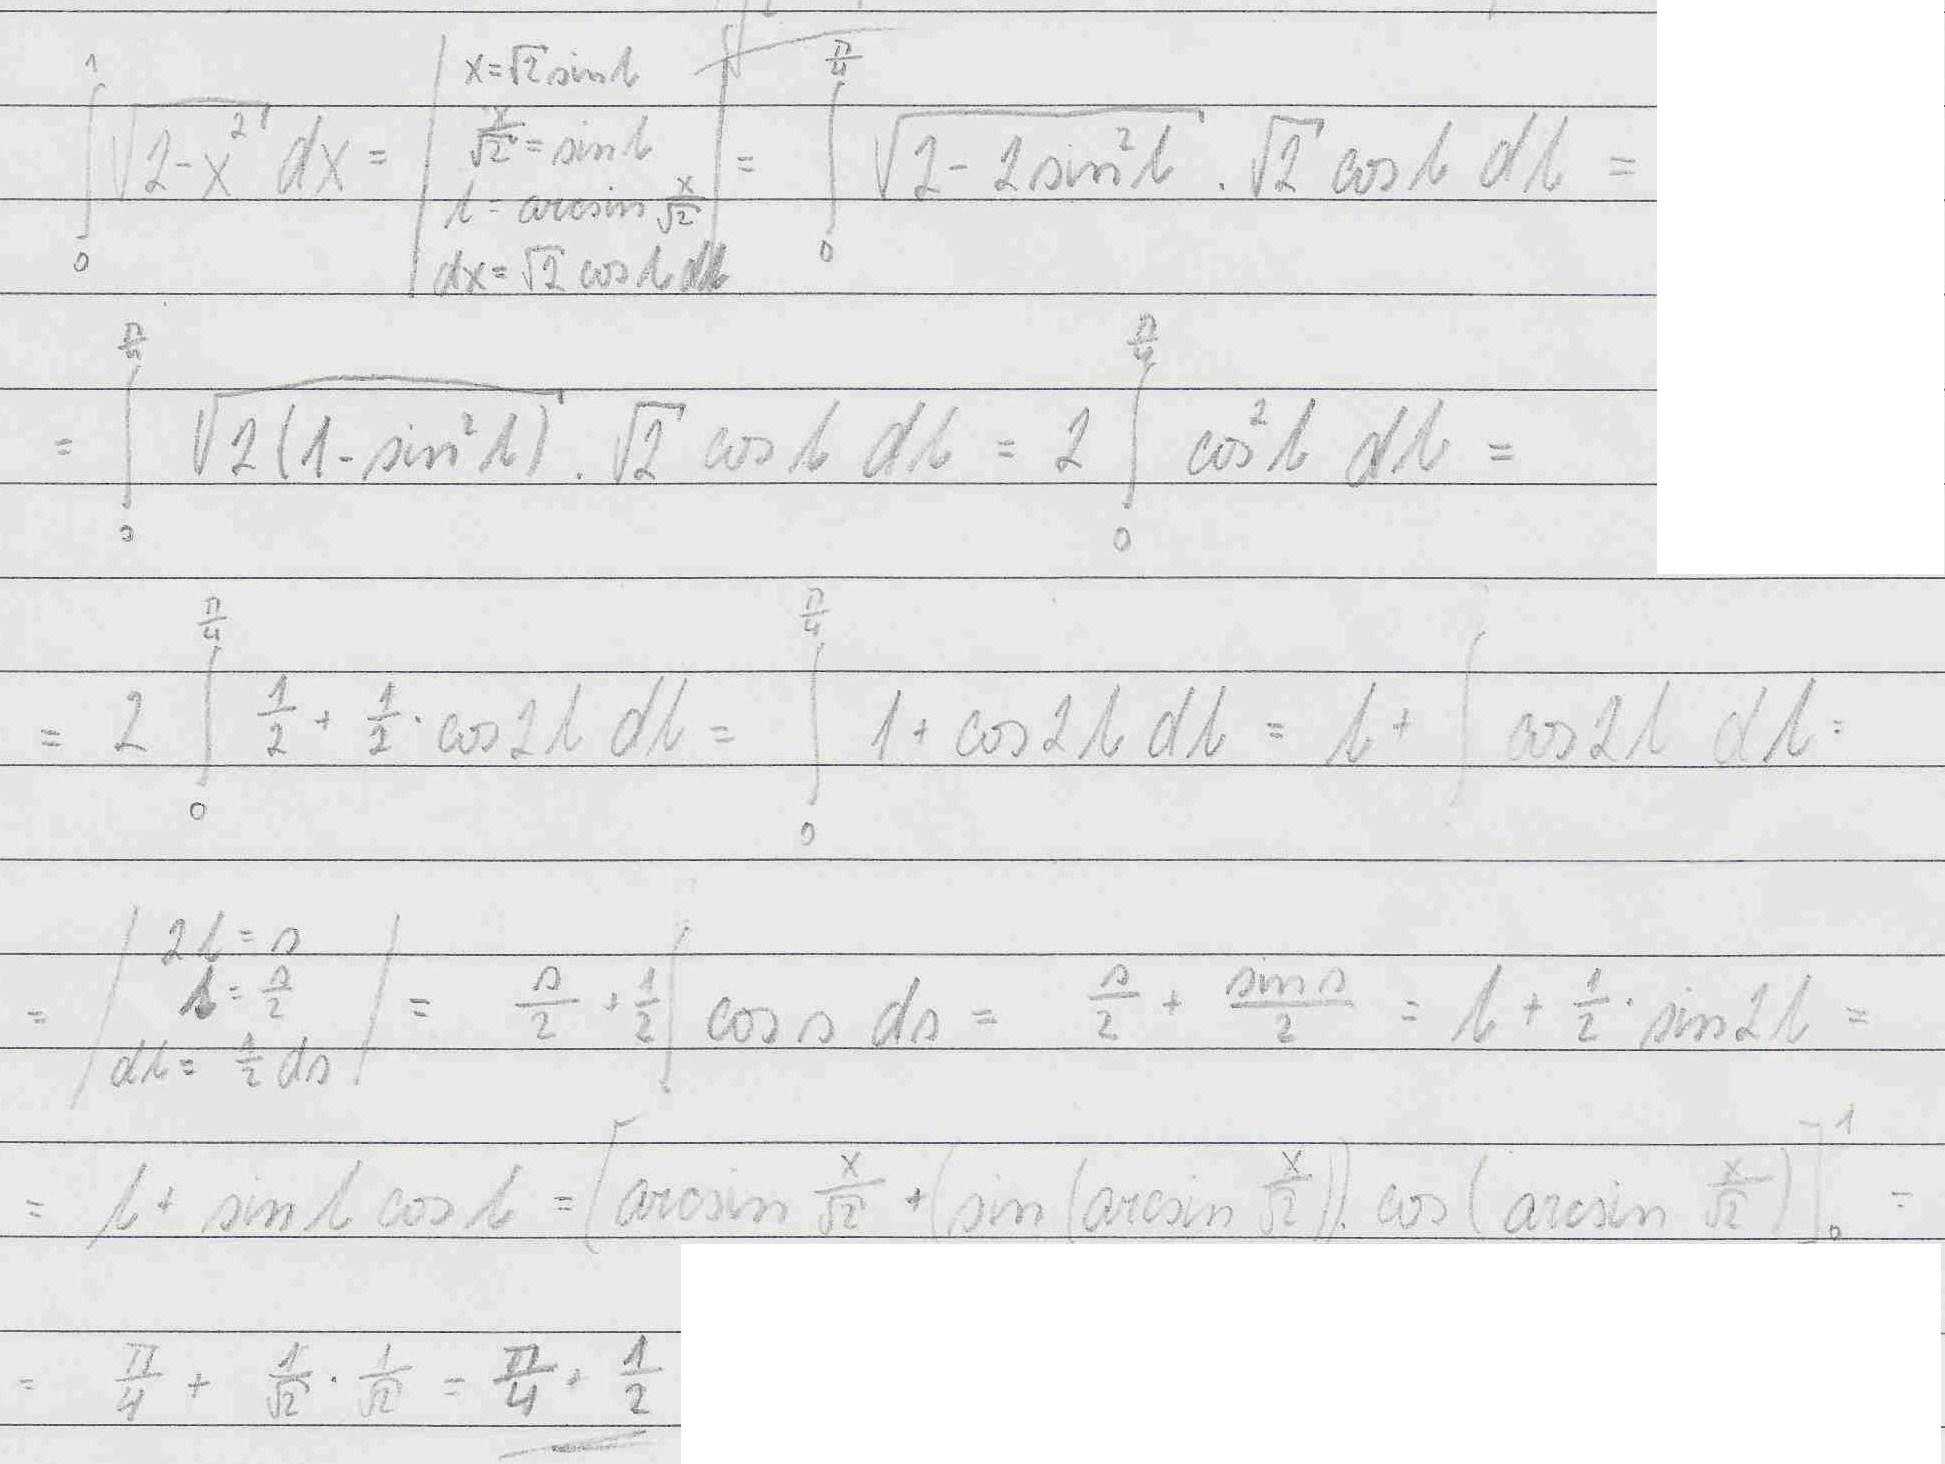 ∫₀¹ √(2-x²) dx = | x = √2 sin t ; x/√2 = sin t ; t = arcsin x/√2 ; dx = √2 cos t dt | = ∫₀^(π/4) √(2-2sin²t) · √2 cos t dt =
= ∫₀^(π/4) √(2(1-sin²t)) · √2 cos t dt = 2 ∫₀^(π/4) cos²t dt =
= 2 ∫₀^(π/4) 1/2 + 1/2 · cos2t dt = ∫₀^(π/4) 1 + cos2t dt = t + ∫ cos2t dt =
= | 2t = s ; t = s/2 ; dt = 1/2 ds | = s/2 + 1/2 ∫ cos s ds = s/2 + sin s/2 = t + 1/2 · sin2t =
= t + sin t cos t = [arcsin x/√2 + (sin(arcsin x/√2)) · cos(arcsin x/√2)]₀¹ =
= π/4 + 1/√2 · 1/√2 = π/4 + 1/2